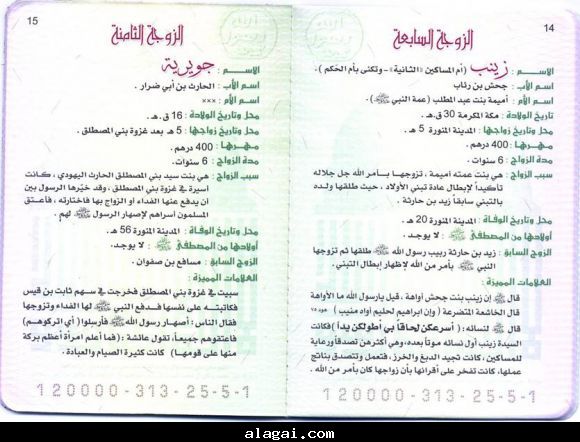 14
الزوجة السابعة
الاسـم : زينب (أم المساكين «الثانية» - وتكنى بأم الحكم ) .
اسم الأب : جحش بن رئاب
اسم الأم : أميمة بنت عبد المطلب (عمة النبي ﷺ) .
تاريخ الولادة : مكة المكرمة 30 ق.هـ .
محل وتاريخ زواجها : المدينة المنورة 5 هـ .
مهـرهـا : 400 درهم .
مدة الزواج : 6 سنوات .
سبب الزواج : هي بنت عمته أميمة ، تزوجهـا بـأمر الله جل جلاله
تأكيداً لإبطال عادة تبني الأولاد ، حيث طلقها ولـده
بالتبني سابقا زيد بن حارثة .
محل وتاريخ الوفـاة : المدينة المنورة 20 هـ .
أولادها من المصطفى ﷺ : لا يوجد .
الزوج السابق : زيد بن حارثة ربيب رسول الله ﷺ طلقها ثم تزوجها
النبي ﷺ بأمر من الله لإظهار إبطال التبني .
العلامات المميزة :
قال ﷺ إن زينب بنت جحش أواهة . قيل يارسول الله ما الأواهة
قال الخاشعة المتضرعة ( وإن ابراهيم لحليم أواه منيب ) هود ٧٥
قال ﷺ لنسائه : ( أسرعكن لحاقـاً بي أطولكن يداً ) فكانت
السيدة زينب أول نسائه موتاً بعده، وهي أكثرهن تصدقاً ورعاية
للمساكين ، كانت تجيد الدبغ والخرز، فتعمل وتتصدق بناتج
عملها، كانت تفخر على أقرانها بأن زواجها كان بأمر من الله .
120000-313-25-5-1
15
الزوجة الثامنة
الاسـم : جويرية
اسم الأب : الحارث بن أبي ضرار .
اسم الأم : ×××
محل وتاريخ الولادة : 16 ق.هـ .
محل وتاريخ زواجها : 5 هـ بعد غزوة بني المصطلق .
مـهـرهـا : 400 درهم .
مدة الزواج : 6 سنوات .
سبب الزواج : هي بنت سيد بني المصطلق الحارث اليهودي ، كانت
أسيرة في غزوة بني المصطلق ، وقد خيّرها الرسول بين
أن يدفع عنها الفداء او الزواج بها فاختارته ، فأعتـق
المسلمون أسراهم لإصهار الرسول ﷺ لهم .
محل وتاريخ الوفـاة : المدينة المنورة 56 هـ .
أولادها من المصطفى ﷺ : لا يوجد .
الزوج السابق : مسافع بن صفوان .
العلامات المميزة :
سبيت في غزوة بني المصطلق فخرجت في سهم ثابت بن قيس
فكاتبتـه على نفسها فـدفع النبي ﷺ لها الفداء وتزوجها
فقال الناس : أصهار رسول الله ﷺ فأرسلوا ( أي اتركوهـم )
فأعتقوهم جميعاً، تقول عائشة : (فما أعلم امرأة أعظم بركة
منها على قومهـا ) كانت كثيرة الصيام والعبادة .
120000-313-25-5-1
alagai.com